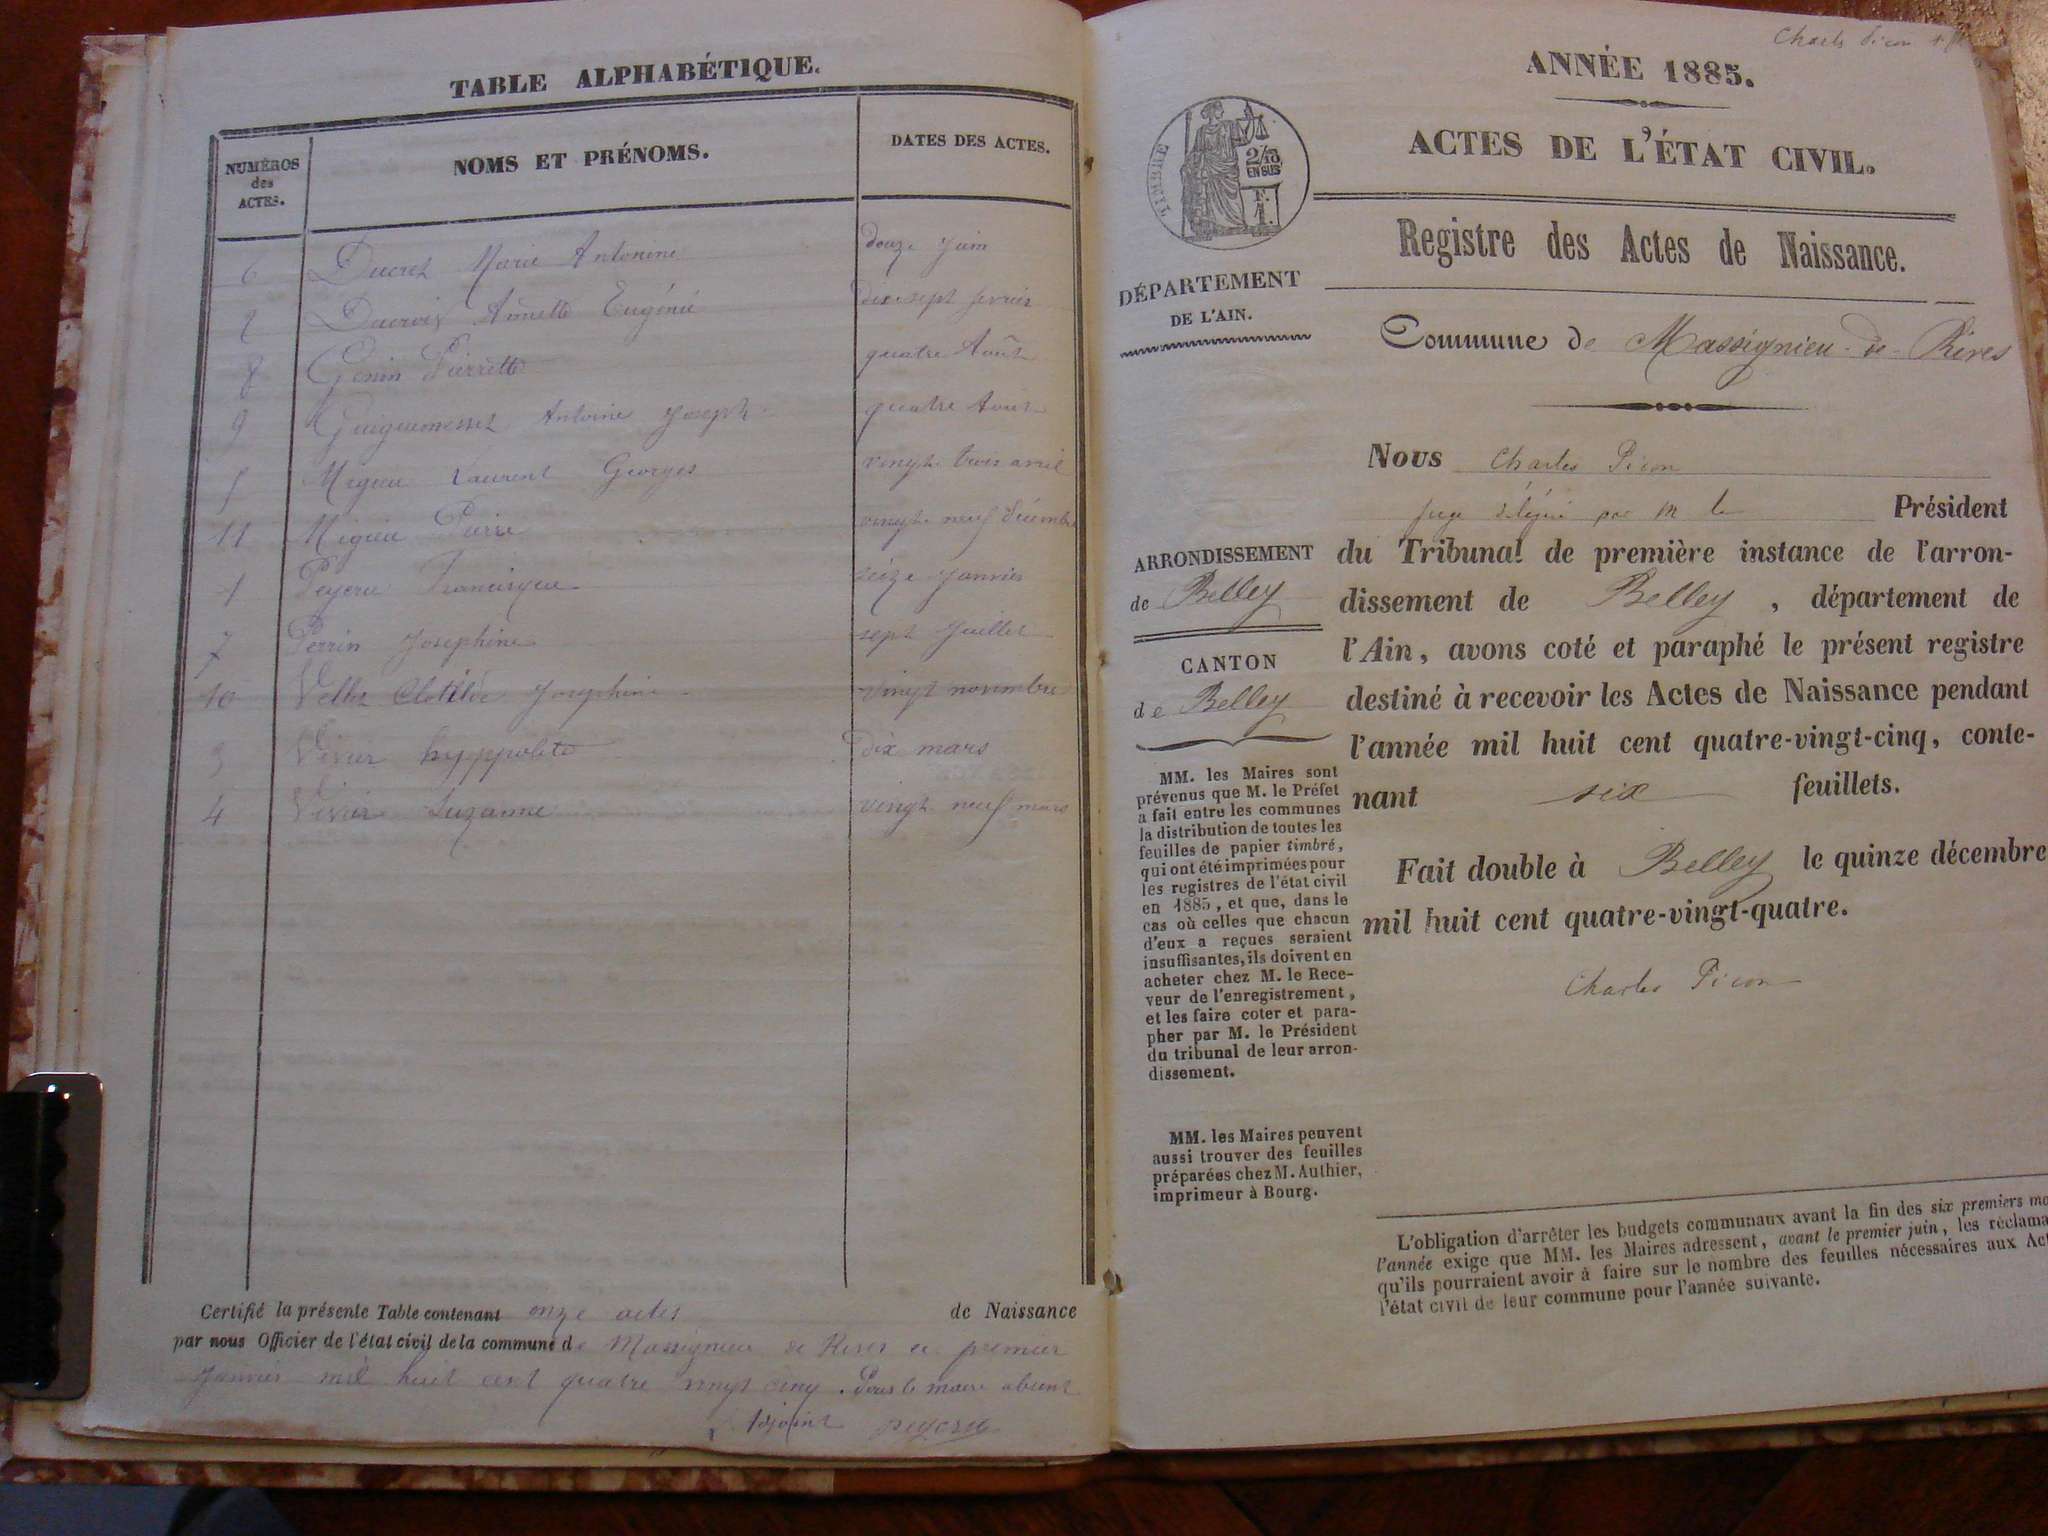 TABLE ALPHABÉTIQUE.
NUMÉROS des ACTES. NOMS ET PRÉNOMS. DATES DES ACTES.
6 Ducret Marie Antonine douze Juin
2 Ducroix Annette Eugénie dix-sept fevrier
8 Genin Pierrette quatre Août
9 Antoine Joseph quatre Aout
5 Migieu Laurent Georges vingt-trois avril
11 Migieu Pierre vingt-neuf décembre
1 Peyeru Francisque seize Janvier
7 Perrin Josephine sept Juillet
10 Vellet Clotilde Josephine vingt novembre
3 Vivier hyppolite dix mars
4 Vivier Suzanne vingt-neuf mars
Certifié la présente Table contenant onze actes de Naissance
par nous Officier de l'état civil de la commune de Massignieu de Rives ce premier
Janvier mil huit cent quatre vingt cinq. Pour le maire absent
L'adjoint
Charles Picon
ANNÉE 1885.
ACTES DE L'ÉTAT CIVIL.
TIMBRE
2/10
EN SUS
F.
1.
Registre des Actes de Naissance.
DÉPARTEMENT
DE L'AIN.
Commune de Massignieu-de-Rives
Nous Charles Picon
juge délégué par M le Président
du Tribunal de première instance de l'arron-
dissement de Belley, département de
l'Ain, avons coté et paraphé le présent registre
destiné à recevoir les Actes de Naissance pendant
l'année mil huit cent quatre-vingt-cinq, conte-
nant six feuillets.
Fait double à Belley le quinze décembre
mil huit cent quatre-vingt-quatre.
Charles Picon
ARRONDISSEMENT
de Belley
CANTON
de Belley
MM. les Maires sont
prévenus que M. le Préfet
a fait entre les communes
la distribution de toutes les
feuilles de papier timbré,
qui ont été imprimées pour
les registres de l'état civil
en 1885, et que, dans le
cas où celles que chacun
d'eux a reçues seraient
insuffisantes, ils doivent en
acheter chez M. le Rece-
veur de l'enregistrement,
et les faire coter et para-
pher par M. le Président
du tribunal de leur arron-
dissement.
MM. les Maires peuvent
aussi trouver des feuilles
préparées chez M. Authier,
imprimeur à Bourg.
L'obligation d'arrêter les budgets communaux avant la fin des six premiers mo
l'année exige que MM. les Maires adressent, avant le premier juin, les réclama
qu'ils pourraient avoir à faire sur le nombre des feuilles nécessaires aux Act
l'état civil de leur commune pour l'année suivante.